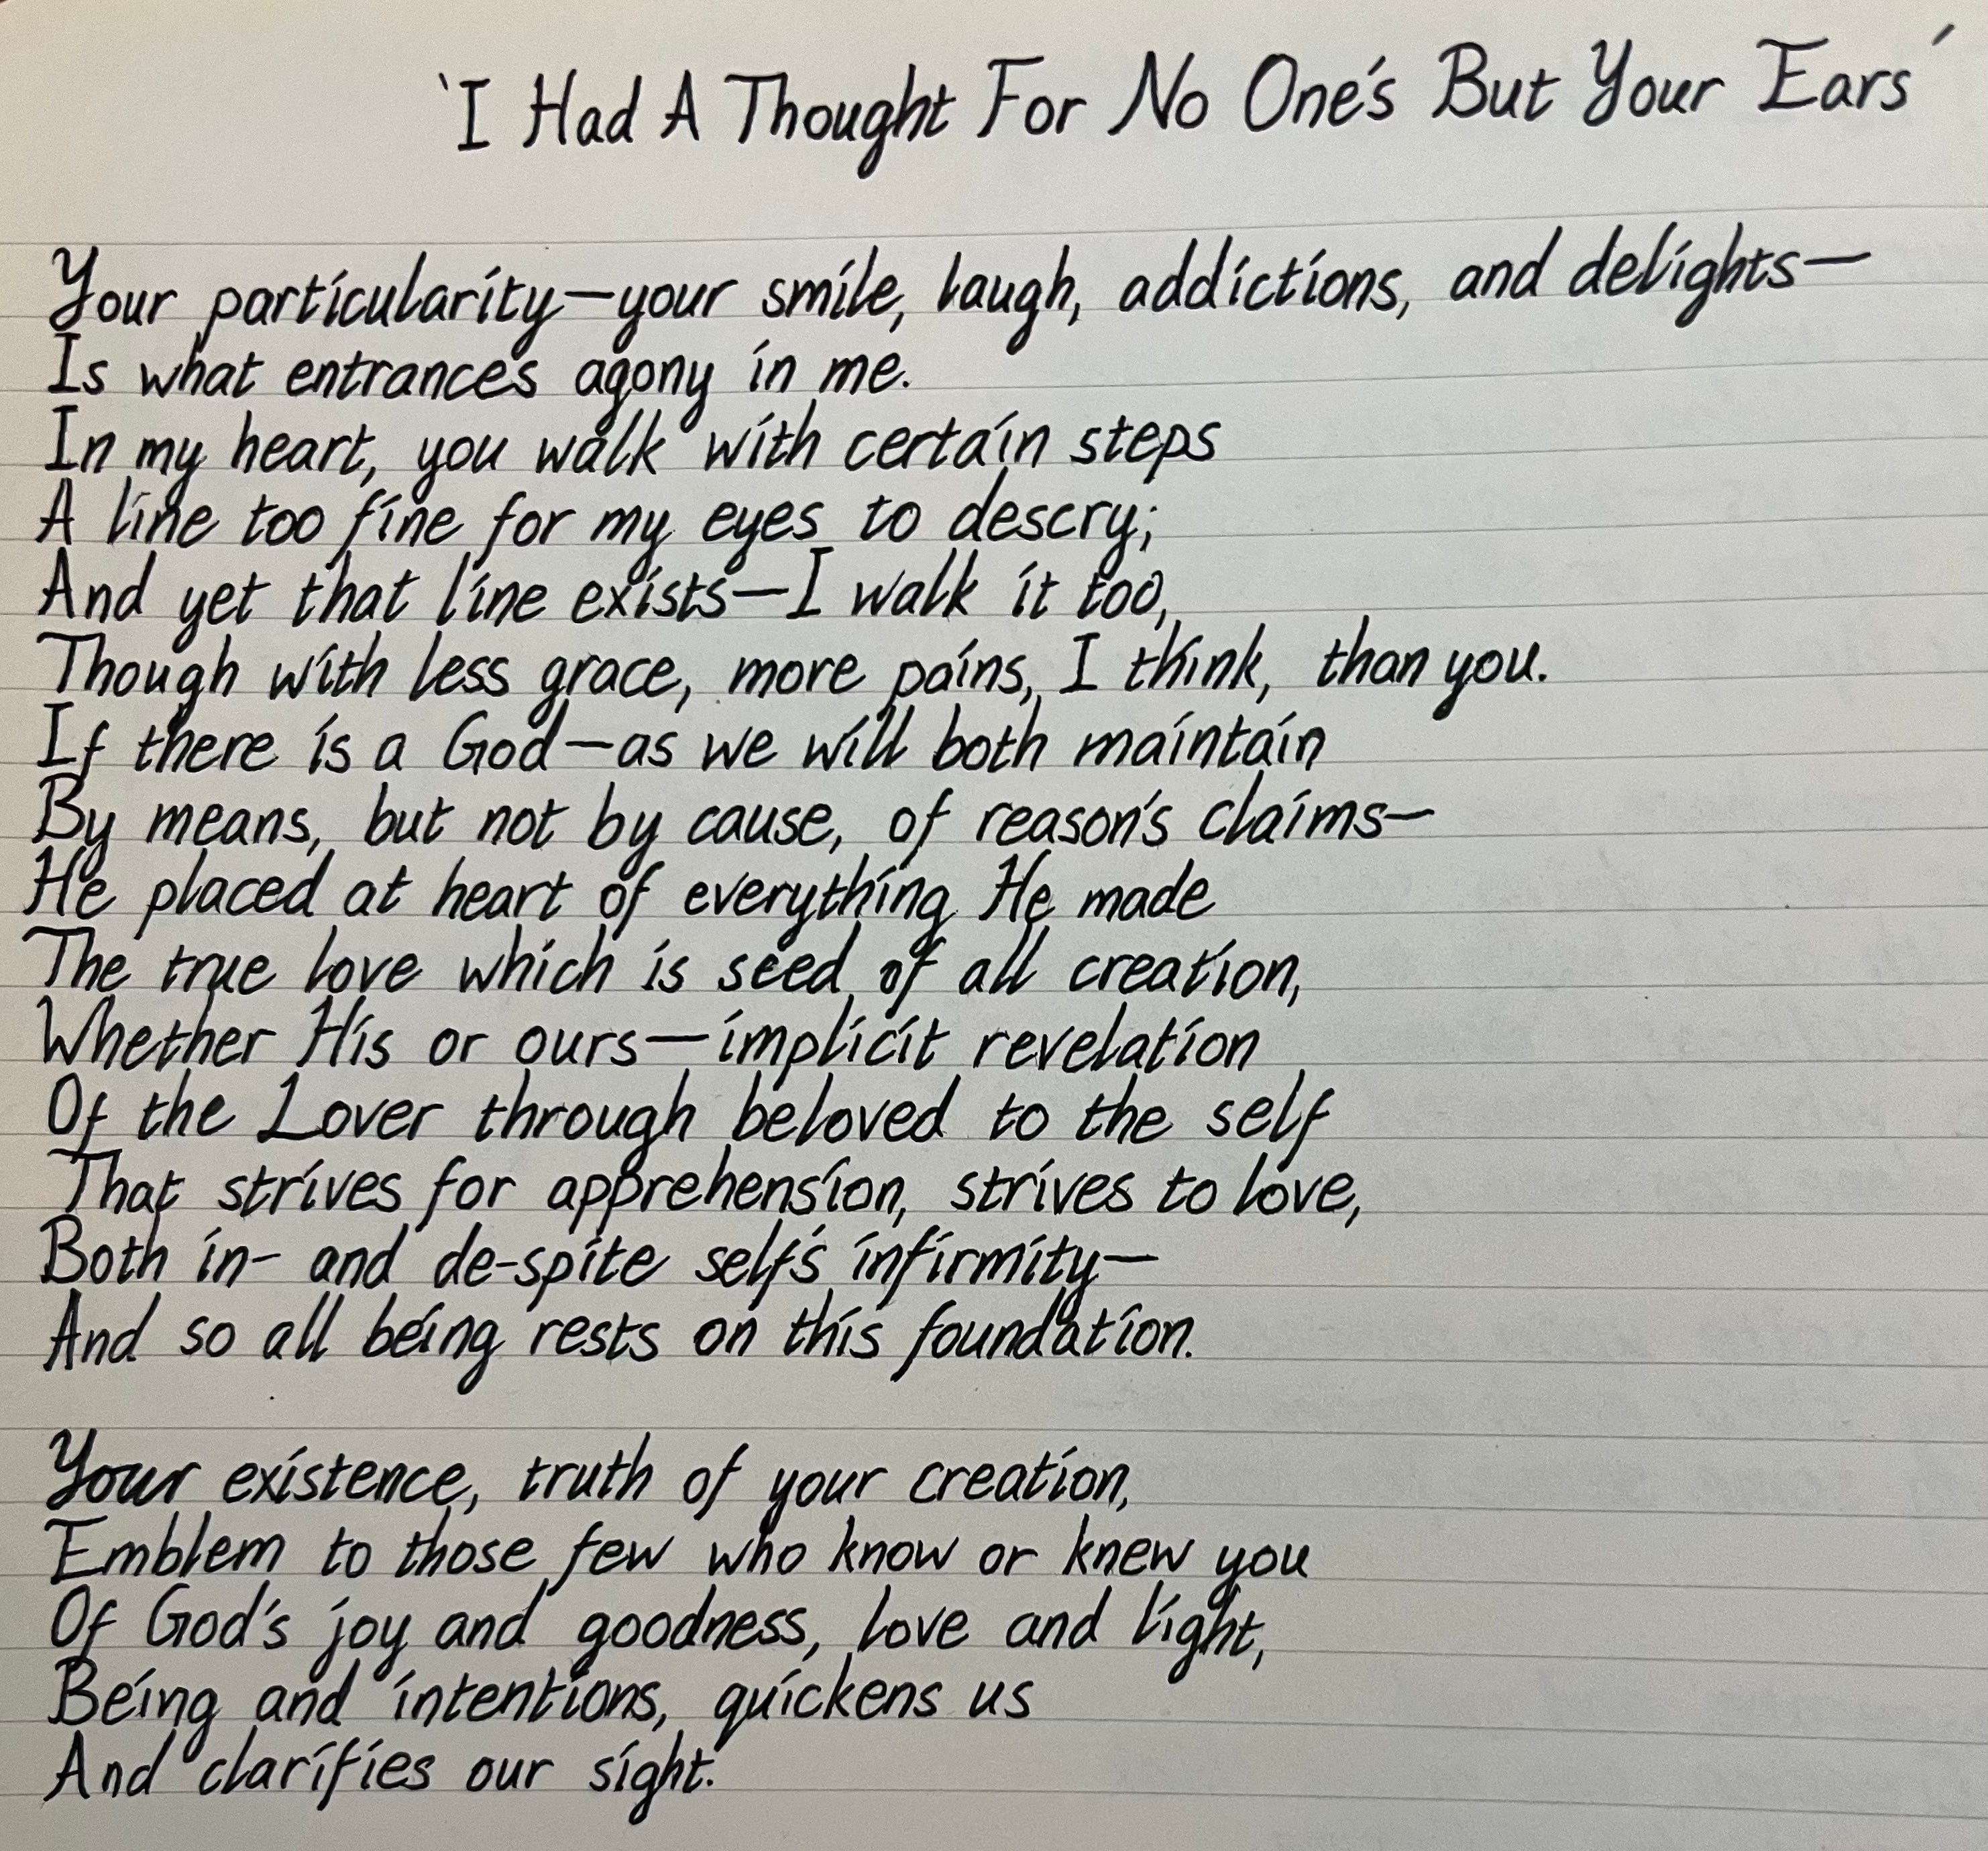 'I Had A Thought For No One's But Your Ears'
Your particularity—your smile, laugh, addictions, and delights—
Is what entrances agony in me.
In my heart, you walk with certain steps
A line too fine for my eyes to descry;
And yet that line exists—I walk it too,
Though with less grace, more pains, I think, than you.
If there is a God—as we will both maintain
By means, but not by cause, of reason's claims—
He placed at heart of everything He made
The true love which is seed of all creation,
Whether His or ours—implicit revelation
Of the Lover through beloved to the self
That strives for apprehension, strives to love,
Both in- and de-spite self's infirmity—
And so all being rests on this foundation.
Your existence, truth of your creation,
Emblem to those few who know or knew you
Of God's joy and goodness, love and light,
Being and intentions, quickens us
And clarifies our sight.